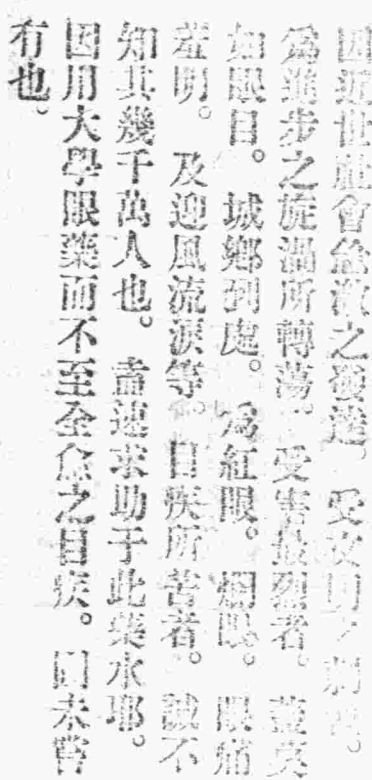 因近世社會急激之發達。受文明之刺。
爲進步之旋渦所轉蕩。受害最烈者。莫
如眼目。城鄉到處。爲紅眼。爛眼。眼痛
羞明。及迎風流淚等。目疾所苦者。誠不
知其幾千萬人也。盍速求助于此藥水耶。
因用大學眼藥而不至全愈之目疾。固未嘗
有也。